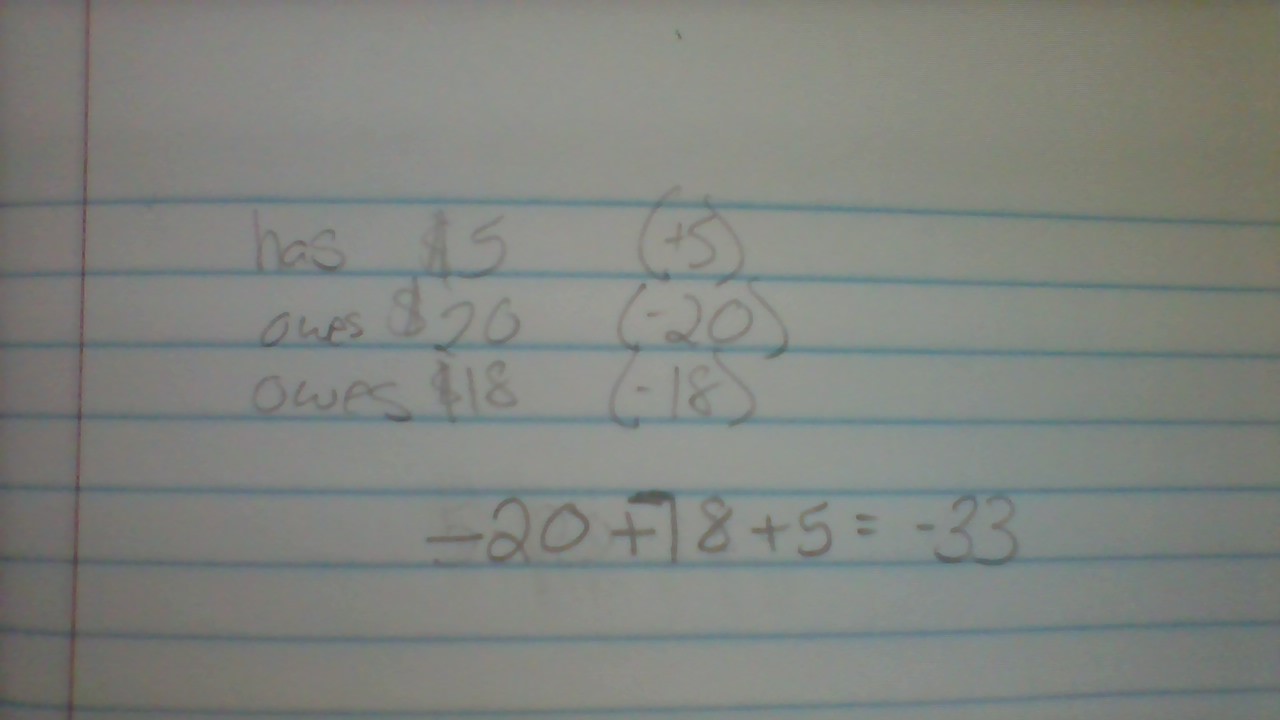 has $5 (+5)
owes $20 (-20)
owes $18 (-18)
-20 + -18 + 5 = -33